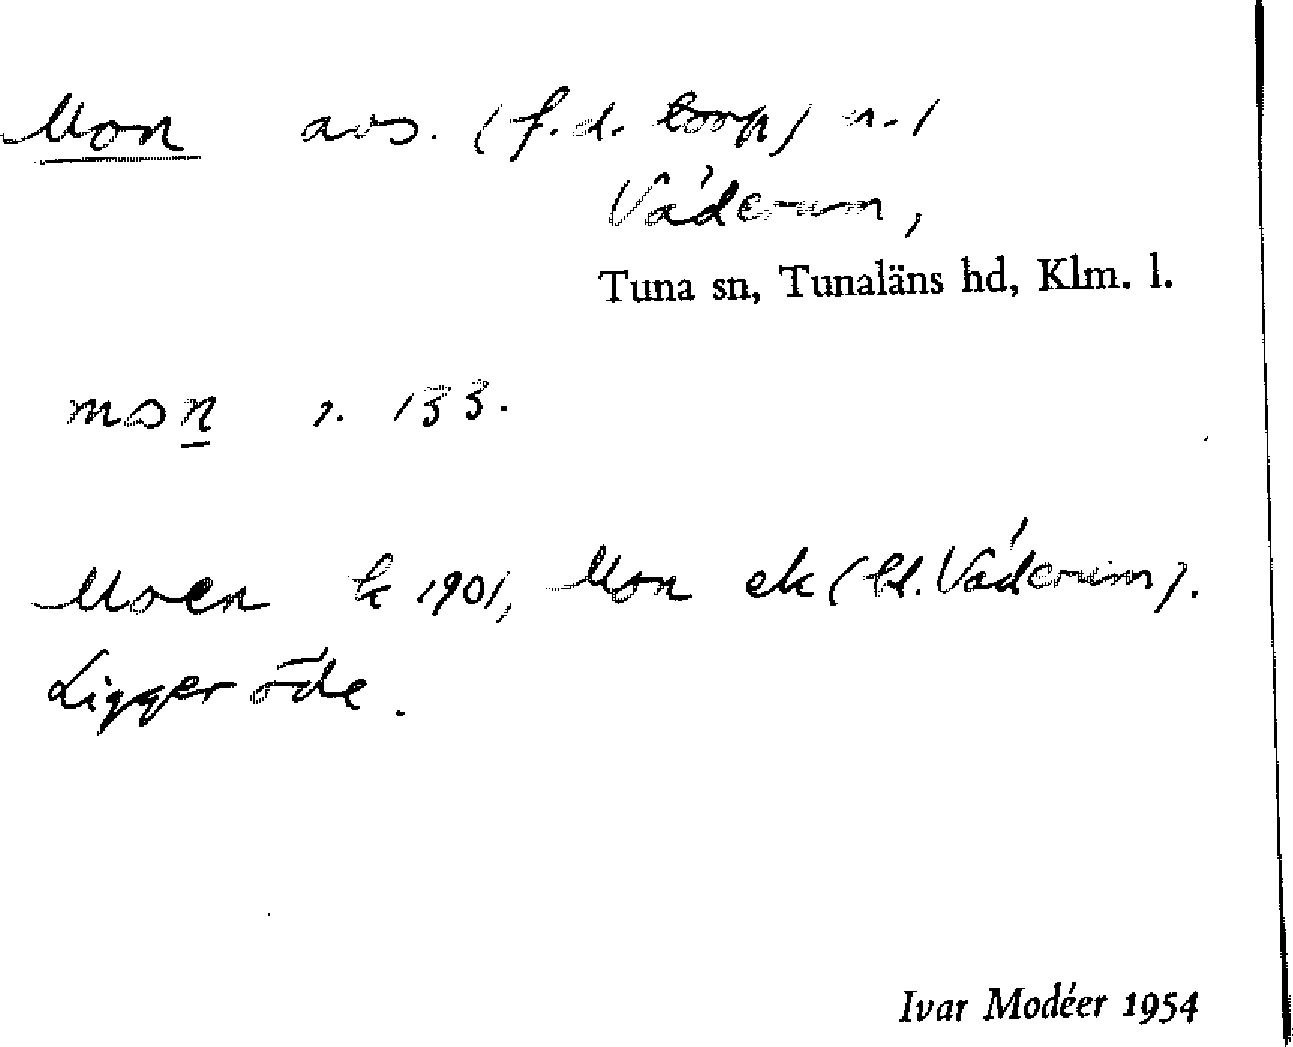 Mon avs. (f.d. torp) n. 1
Våderum,
Tuna sn, Tunaläns hd, Klm. l.
mon 133.
Moen k 1901, Mon ek (bl. Våderum).
Ligger öde.
Ivar Modéer 1954